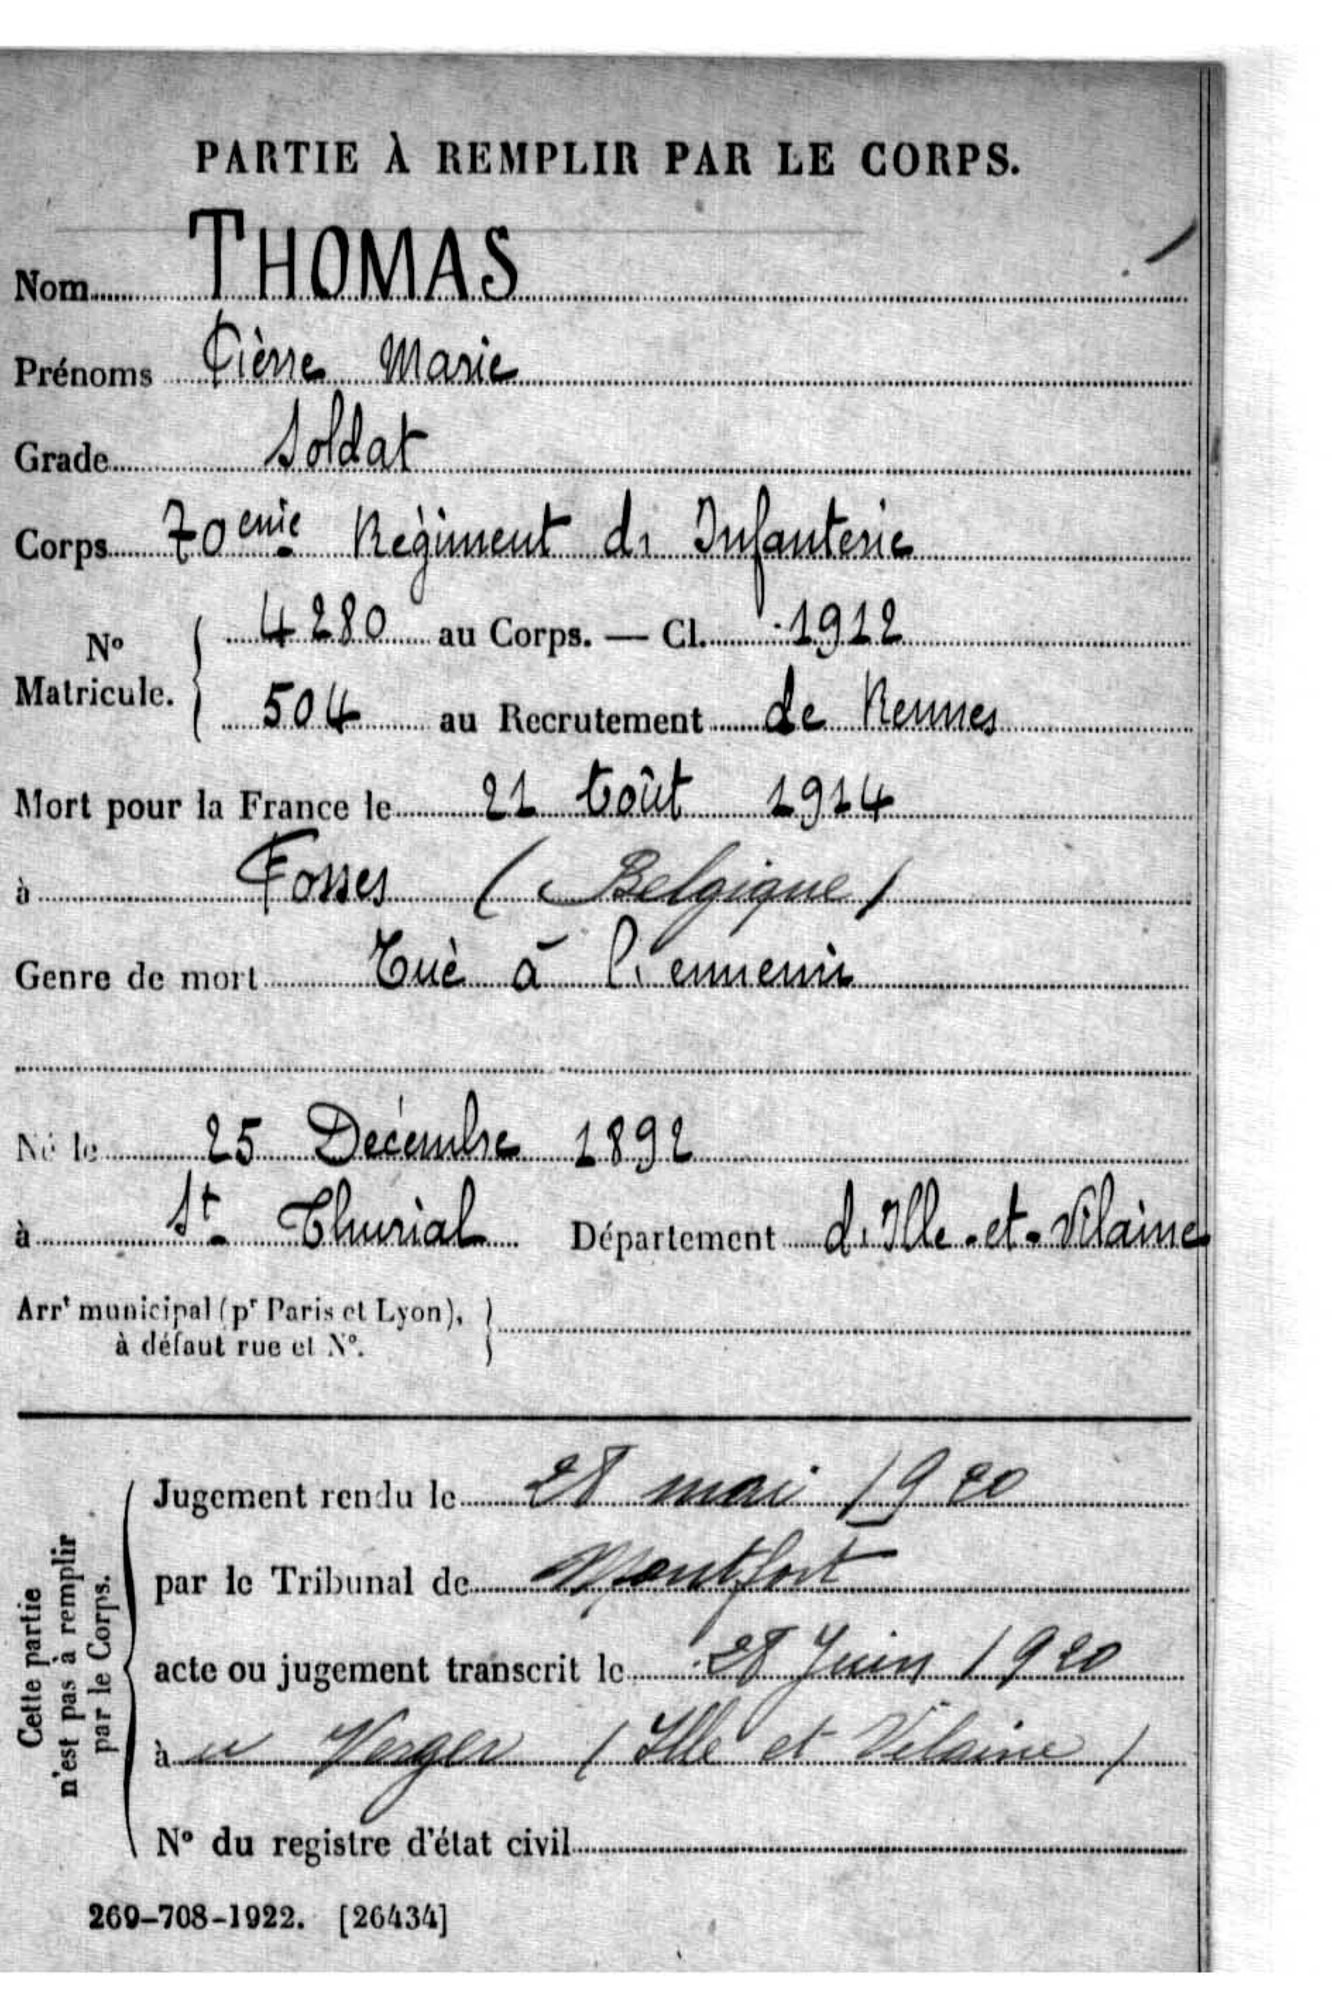 PARTIE À REMPLIR PAR LE CORPS.
Nom THOMAS
Prénoms Pièrre Marie
Grade Soldat
Corps 70 emie Régiment d' Infanterie
N° Matricule. 4280 au Corps. — Cl. 1912
504 au Recrutement de Rennes
Mort pour la France le 21 Août 1914
à Fosses (Belgique)
Genre de mort Tué à l'ennemi
Né le 25 Décembre 1892
à St Thurial Département d'Ille-et-Vilaine
Arrt municipal (pr Paris et Lyon),
à défaut rue et N°.
Cette partie
n'est pas à remplir
par le Corps.
Jugement rendu le 28 mai 1920
par le Tribunal de Montfort
acte ou jugement transcrit le 28 Juin 1920
à Verger (Ille et Vilaine)
N° du registre d'état civil
269-708-1922. [26434]